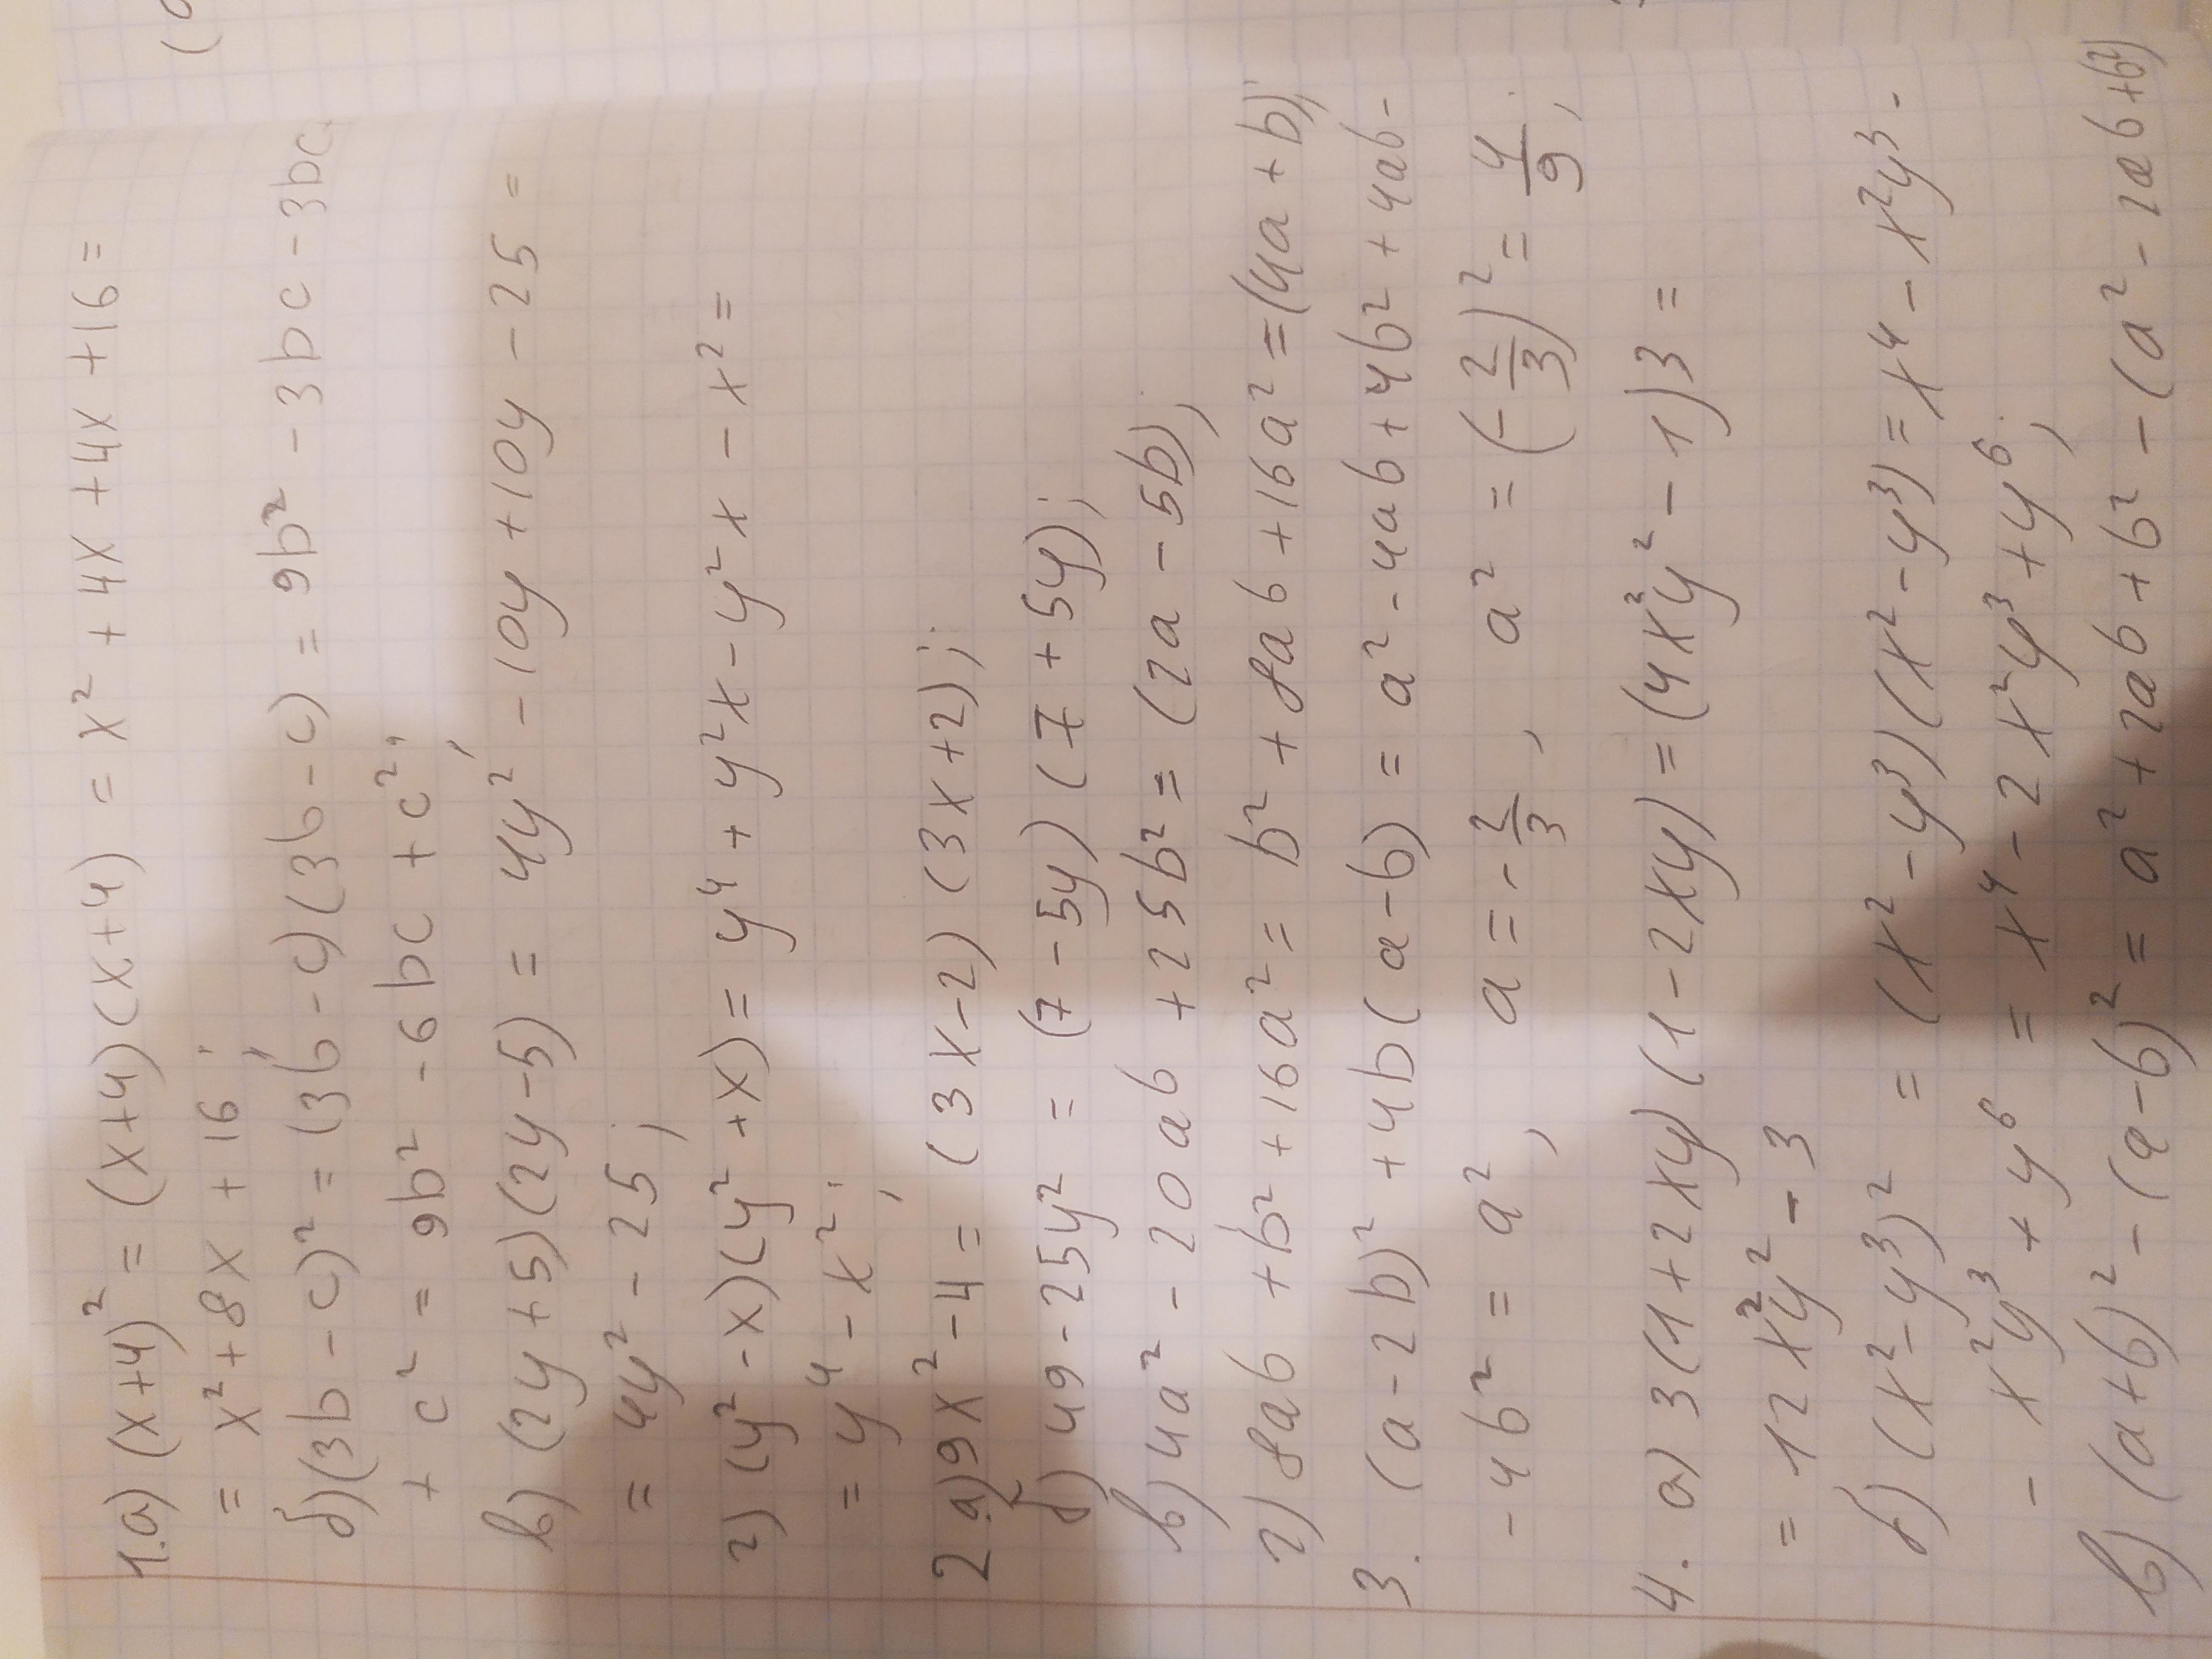 1.а) (x+4)² = (x+4)(x+4) = x² + 4x + 4x + 16 =
= x² + 8x + 16;
б) (3b - c)² = (3b - c)(3b - c) = 9b² - 3bc - 3bc
+ c² = 9b² - 6bc + c²;
в) (2y + 5)(2y - 5) = 4y² - 10y + 10y - 25 =
= 4y² - 25;
г) (y² - x)(y² + x) = y⁴ + y²x - y²x - x² =
= y⁴ - x²;
2.а) 9x² - 4 = (3x - 2)(3x + 2);
б) 49 - 25y² = (7 - 5y)(7 + 5y);
в) 4a² - 20ab + 25b² = (2a - 5b);
г) 8ab + b² + 16a² = b² + 8ab + 16a² = (4a + b);
3. (a - 2b)² + 4b(a - b) = a² - 4ab + 4b² + 4ab -
- 4b² = a², a = - 2/3, a² = (- 2/3)² = 4/9;
4. а) 3(1 + 2xy)(1 - 2xy) = (4x²y² - 1)3 =
= 12x²y² - 3
б) (x² - y³)² = (x² - y³)(x² - y³) = x⁴ - x²y³ -
- x²y³ + y⁶ = x⁴ - 2x²y³ + y⁶;
в) (a+b)² - (a-b)² = a² + 2ab + b² - (a² - 2ab + b²)